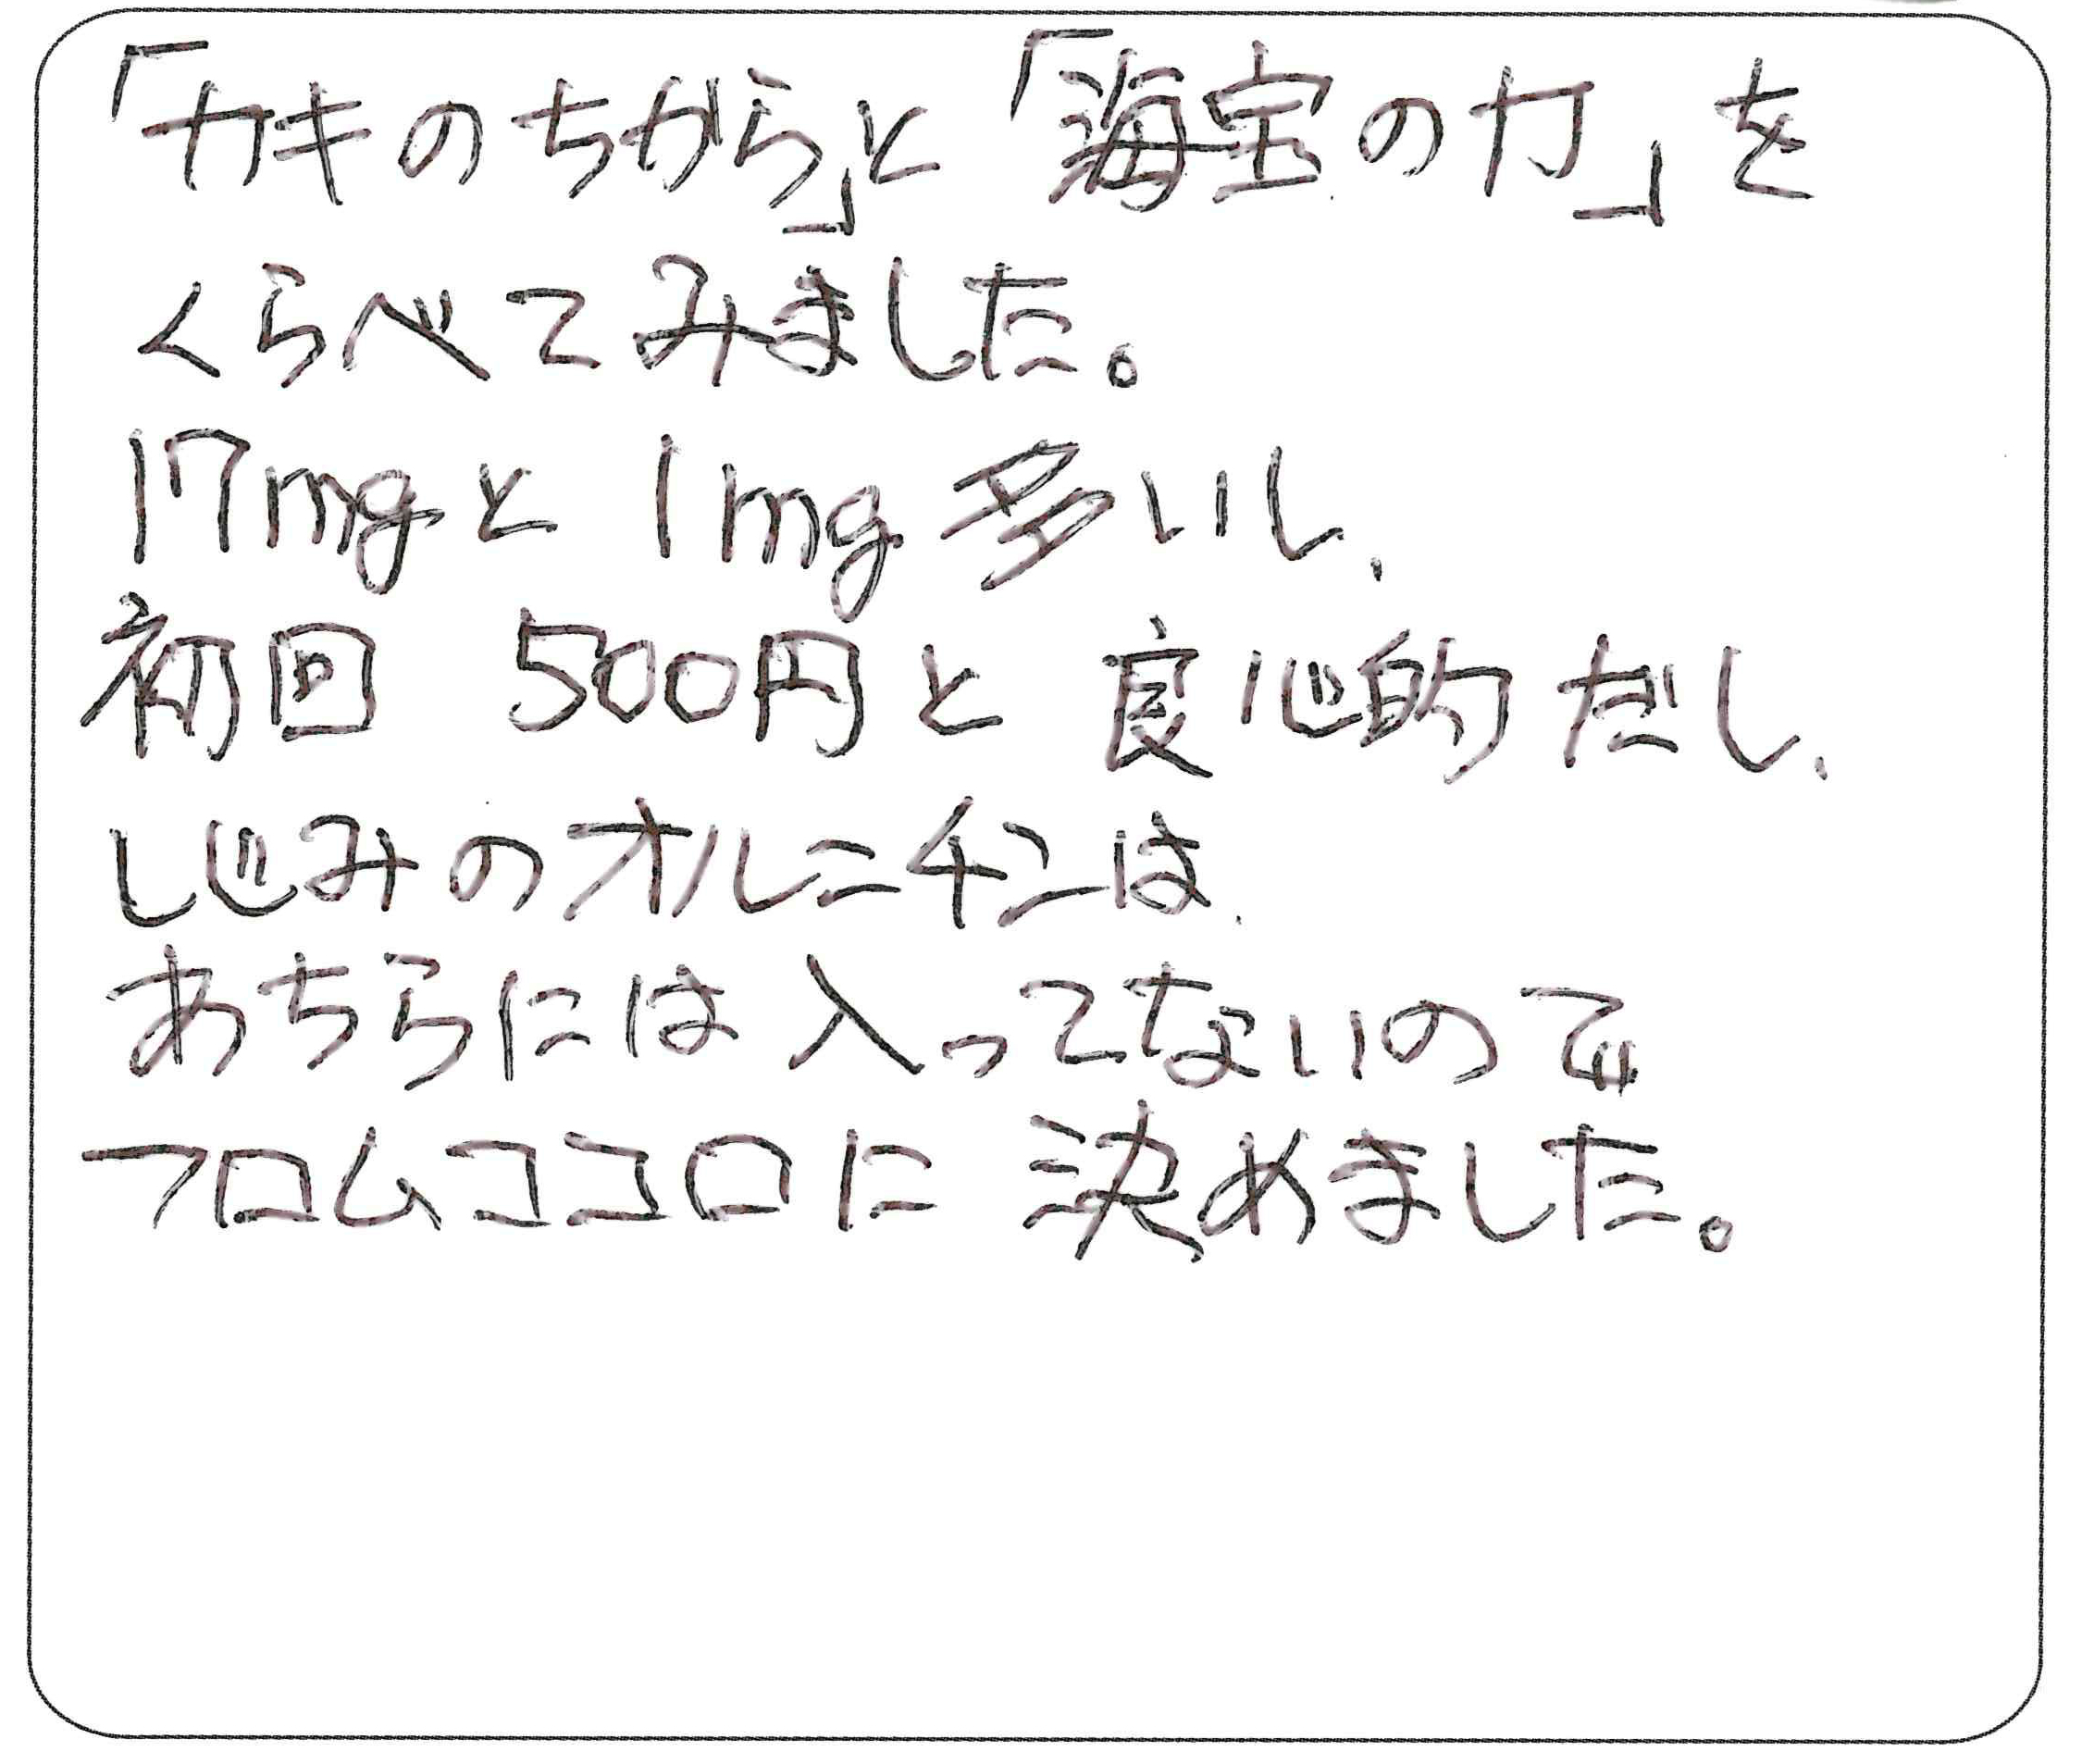 「カキのちから」と「海宝の力」を
くらべてみました。
17mgと 1mg多いし、
初回 500円と 良心的だし、
しじみのオルニチンは、
あちらには入ってないので
フロムココロに 決めました。